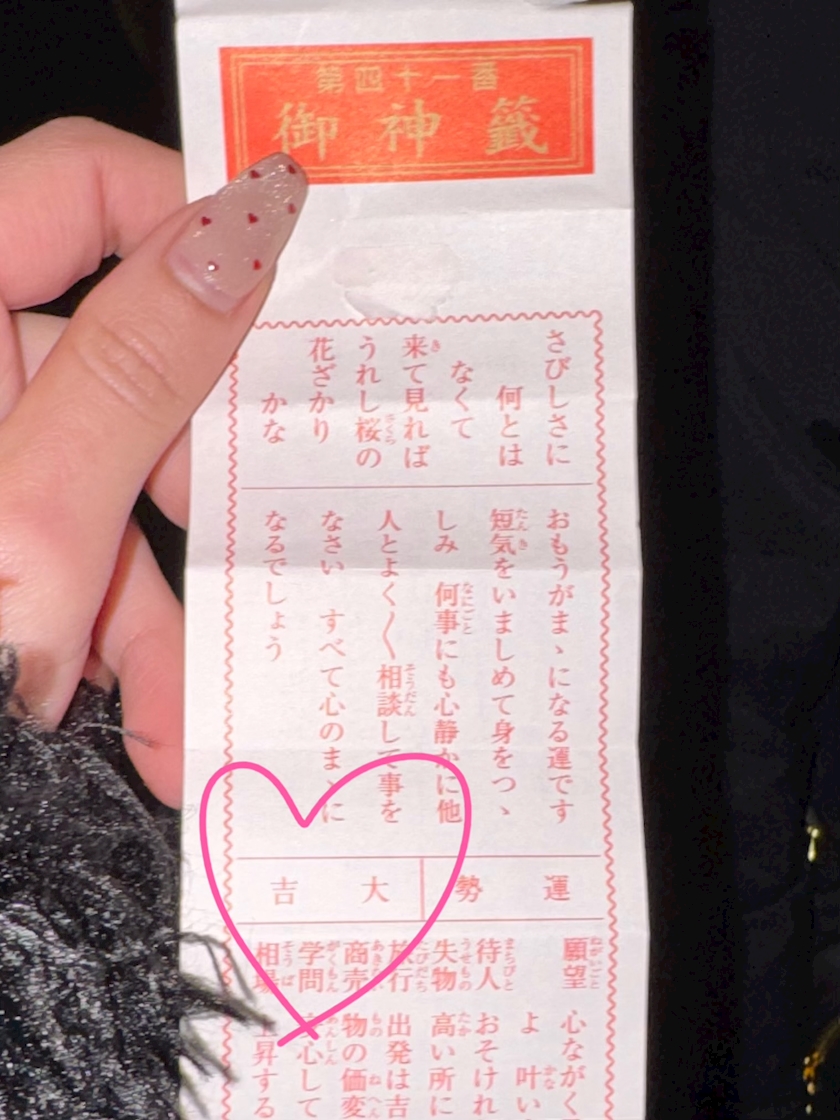 第四十一番
御神籤
さびしさに
何とは
なくて
来て見れば
うれし桜の
花ざかり
かな
おもうがまゝになる運です
短気をいましめて身をつゝ
しみ 何事にも心静かに他
人とよく〱相談して事を
なさい すべて心のまゝに
なるでしょう
運勢
大吉
願望 心ながく
よ 叶い
待人 おそけれ
失物 高い所に
旅行 出発は吉
商売 物の価変
学問 安心して
相場 上昇する